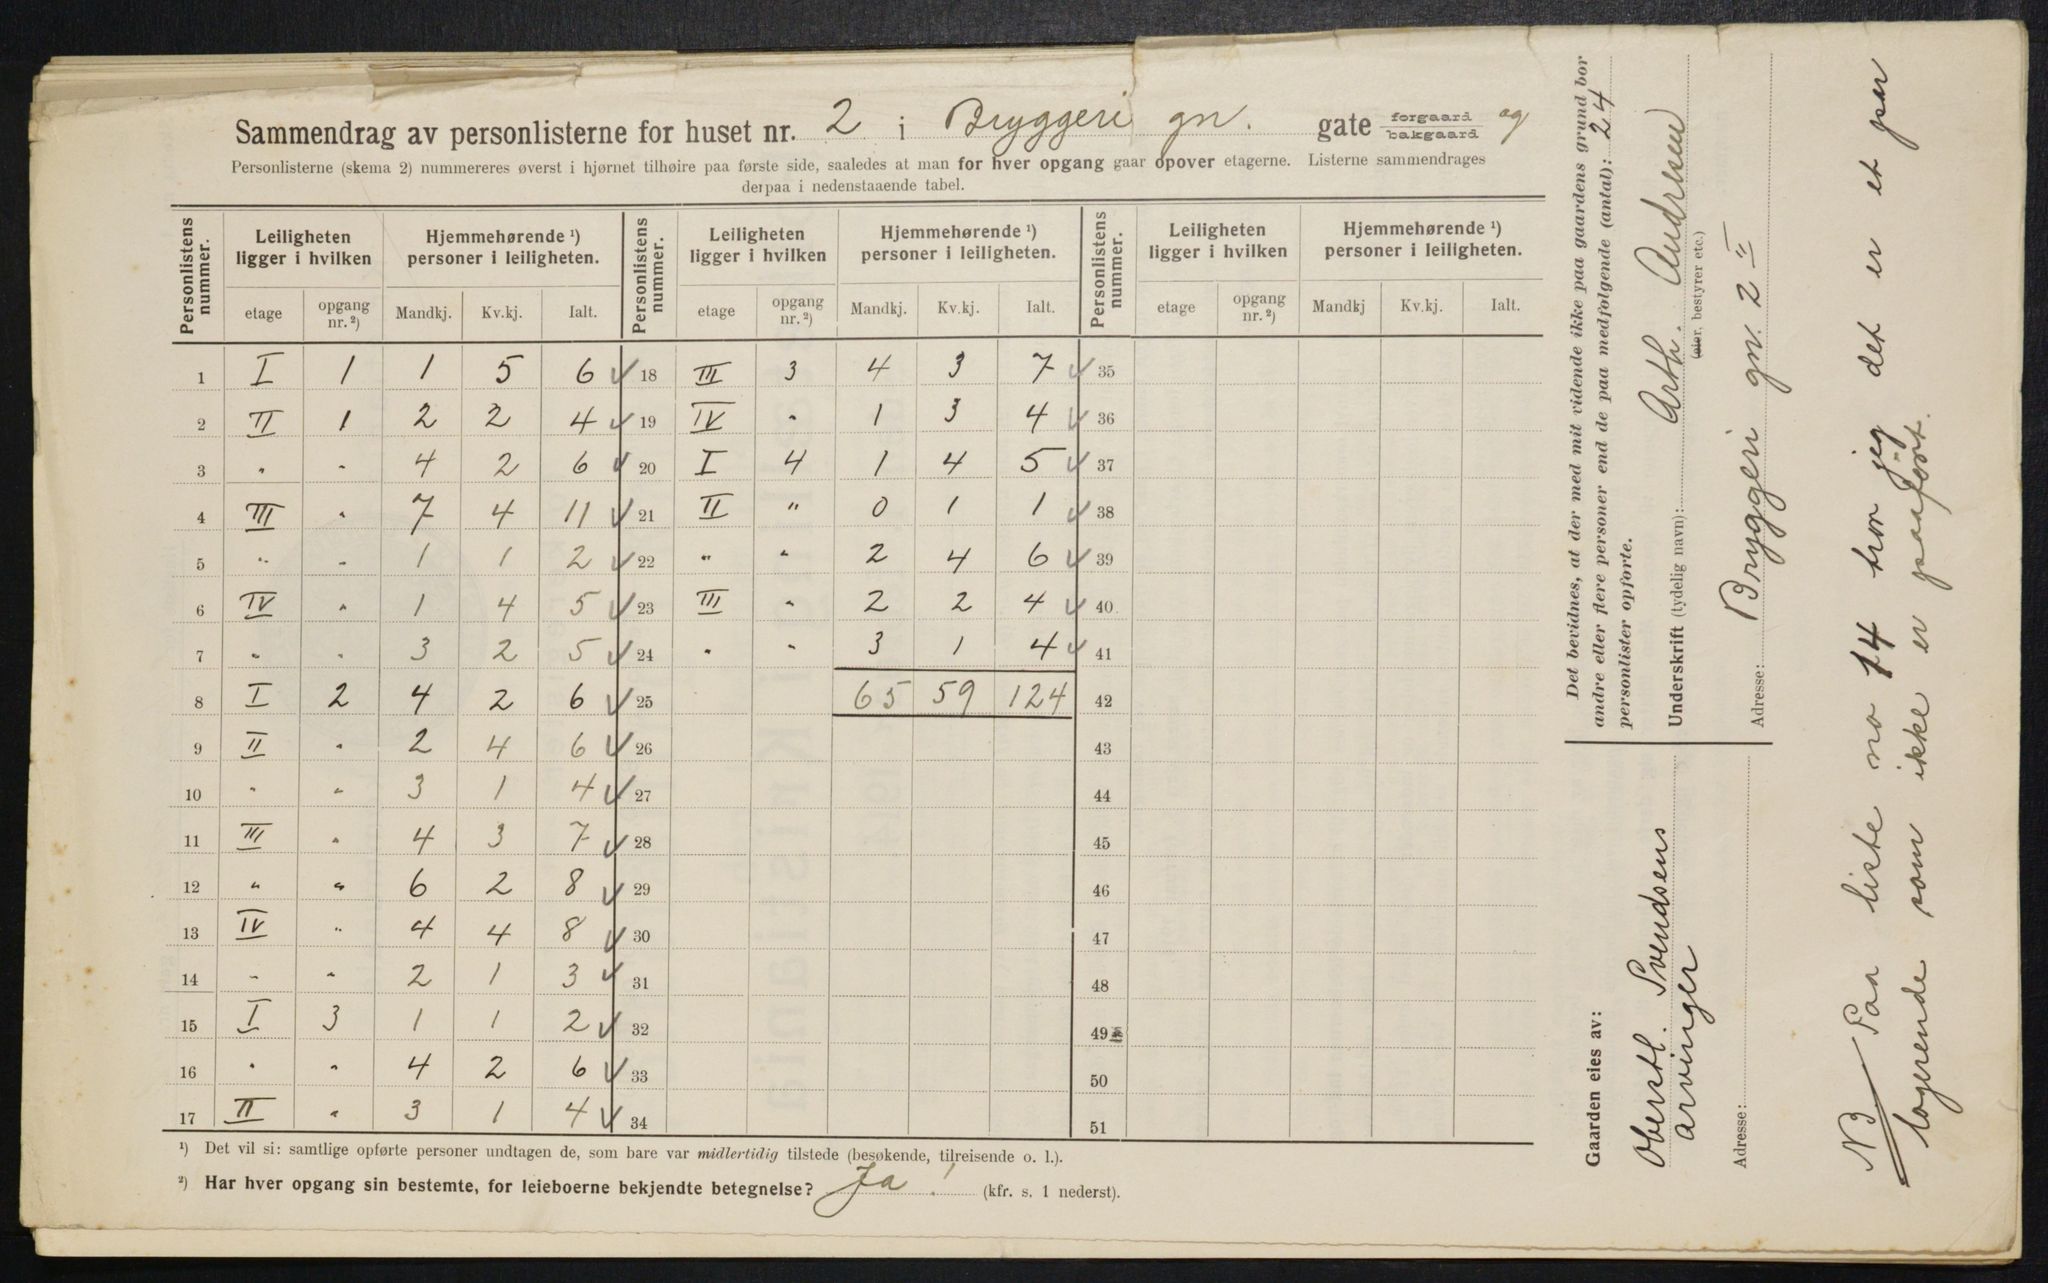 Sammendrag av personlisterne for huset nr. 2 i Bryggeri gn. gate forgaard bakgaard og
Personlisterne (skema 2) nummereres øverst i hjørnet tilhøire paa første side, saaledes at man for hver opgang gaar opover etagerne. Listerne sammendrages
derpaa i nedenstaaende tabel.
Personlistens nummer. Leiligheten ligger i hvilken Hjemmehørende ¹) personer i leiligheten. Personlistens nummer. Leiligheten ligger i hvilken Hjemmehørende ¹) personer i leiligheten. Personlistens nummer. Leiligheten ligger i hvilken Hjemmehørende ¹) personer i leiligheten.
etage opgang nr. ²) Mandkj. Kv.kj. Ialt. etage opgang nr. ²) Mandkj. Kv.kj. Ialt. etage opgang nr. ²) Mandkj Kv.kj. Ialt.
1 I 1 1 5 6 ✓ 18 III 3 4 3 7 ✓ 35
2 II 1 2 2 4 ✓ 19 IV " 1 3 4 ✓ 36
3 " " 4 2 6 ✓ 20 I 4 1 4 5 ✓ 37
4 III " 7 4 11 ✓ 21 II " 0 1 1 ✓ 38
5 " " 1 1 2 ✓ 22 " " 2 4 6 ✓ 39
6 IV " 1 4 5 ✓ 23 III " 2 2 4 ✓ 40
7 " " 3 2 5 ✓ 24 " " 3 1 4 ✓ 41
8 I 2 4 2 6 ✓ 25 65 59 124 42
9 II " 2 4 6 ✓ 26 43
10 " " 3 1 4 ✓ 27 44
11 III " 4 3 7 ✓ 28 45
12 " " 6 2 8 ✓ 29 46
13 IV " 4 4 8 ✓ 30 47
14 " " 2 1 3 ✓ 31 48
15 I 3 1 1 2 ✓ 32 49
16 " " 4 2 6 ✓ 33 50
17 II " 3 1 4 ✓ 34 51
¹) Det vil si: samtlige opførte personer undtagen de, som bare var midlertidig tilstede (besøkende, tilreisende o. l.).
²) Har hver opgang sin bestemte, for leieboerne bekjendte betegnelse? Ja ! (kfr. s. 1 nederst).
Det bevidnes, at der med mit vidende ikke paa gaardens grund bor
andre eller flere personer end de paa medfølgende (antal): 24
personlister opførte.
Underskrift (tydelig navn): Arth. Andresen
(eier, bestyrer etc.)
Adresse: Bryggeri gn. 2 II
Gaarden eies av:
Oberstl. Svendsens
arvinger
Adresse:
NB. Paa liste no 14 tror jeg det er et par
logerende som ikke er paaført.